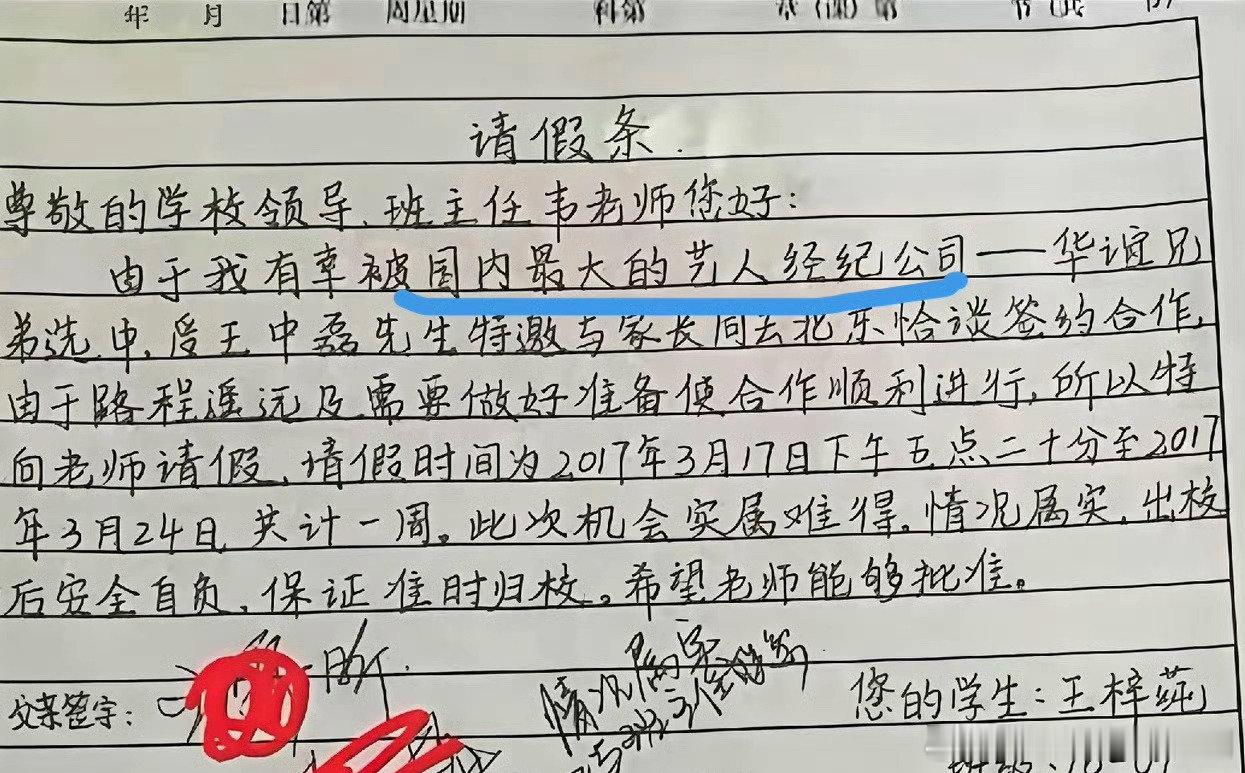 年 月 日第 周星期 科第 章(课)第
请假条.
尊敬的学校领导、班主任韦老师您好:
由于我有幸被国内最大的艺人经纪公司——华谊兄
弟选中,受王中磊先生特邀与家长同去北京恰谈签约合作,
由于路程遥远及需要做好准备使合作顺利进行,所以特
向老师请假,请假时间为2017年3月17日下午五点二十分至2017
年3月24日,共计一周。此次机会实属难得,情况属实,出校
后安全自负,保证准时归校。希望老师能够批准。
情况属实
父亲签字:
您的学生:王梓莼